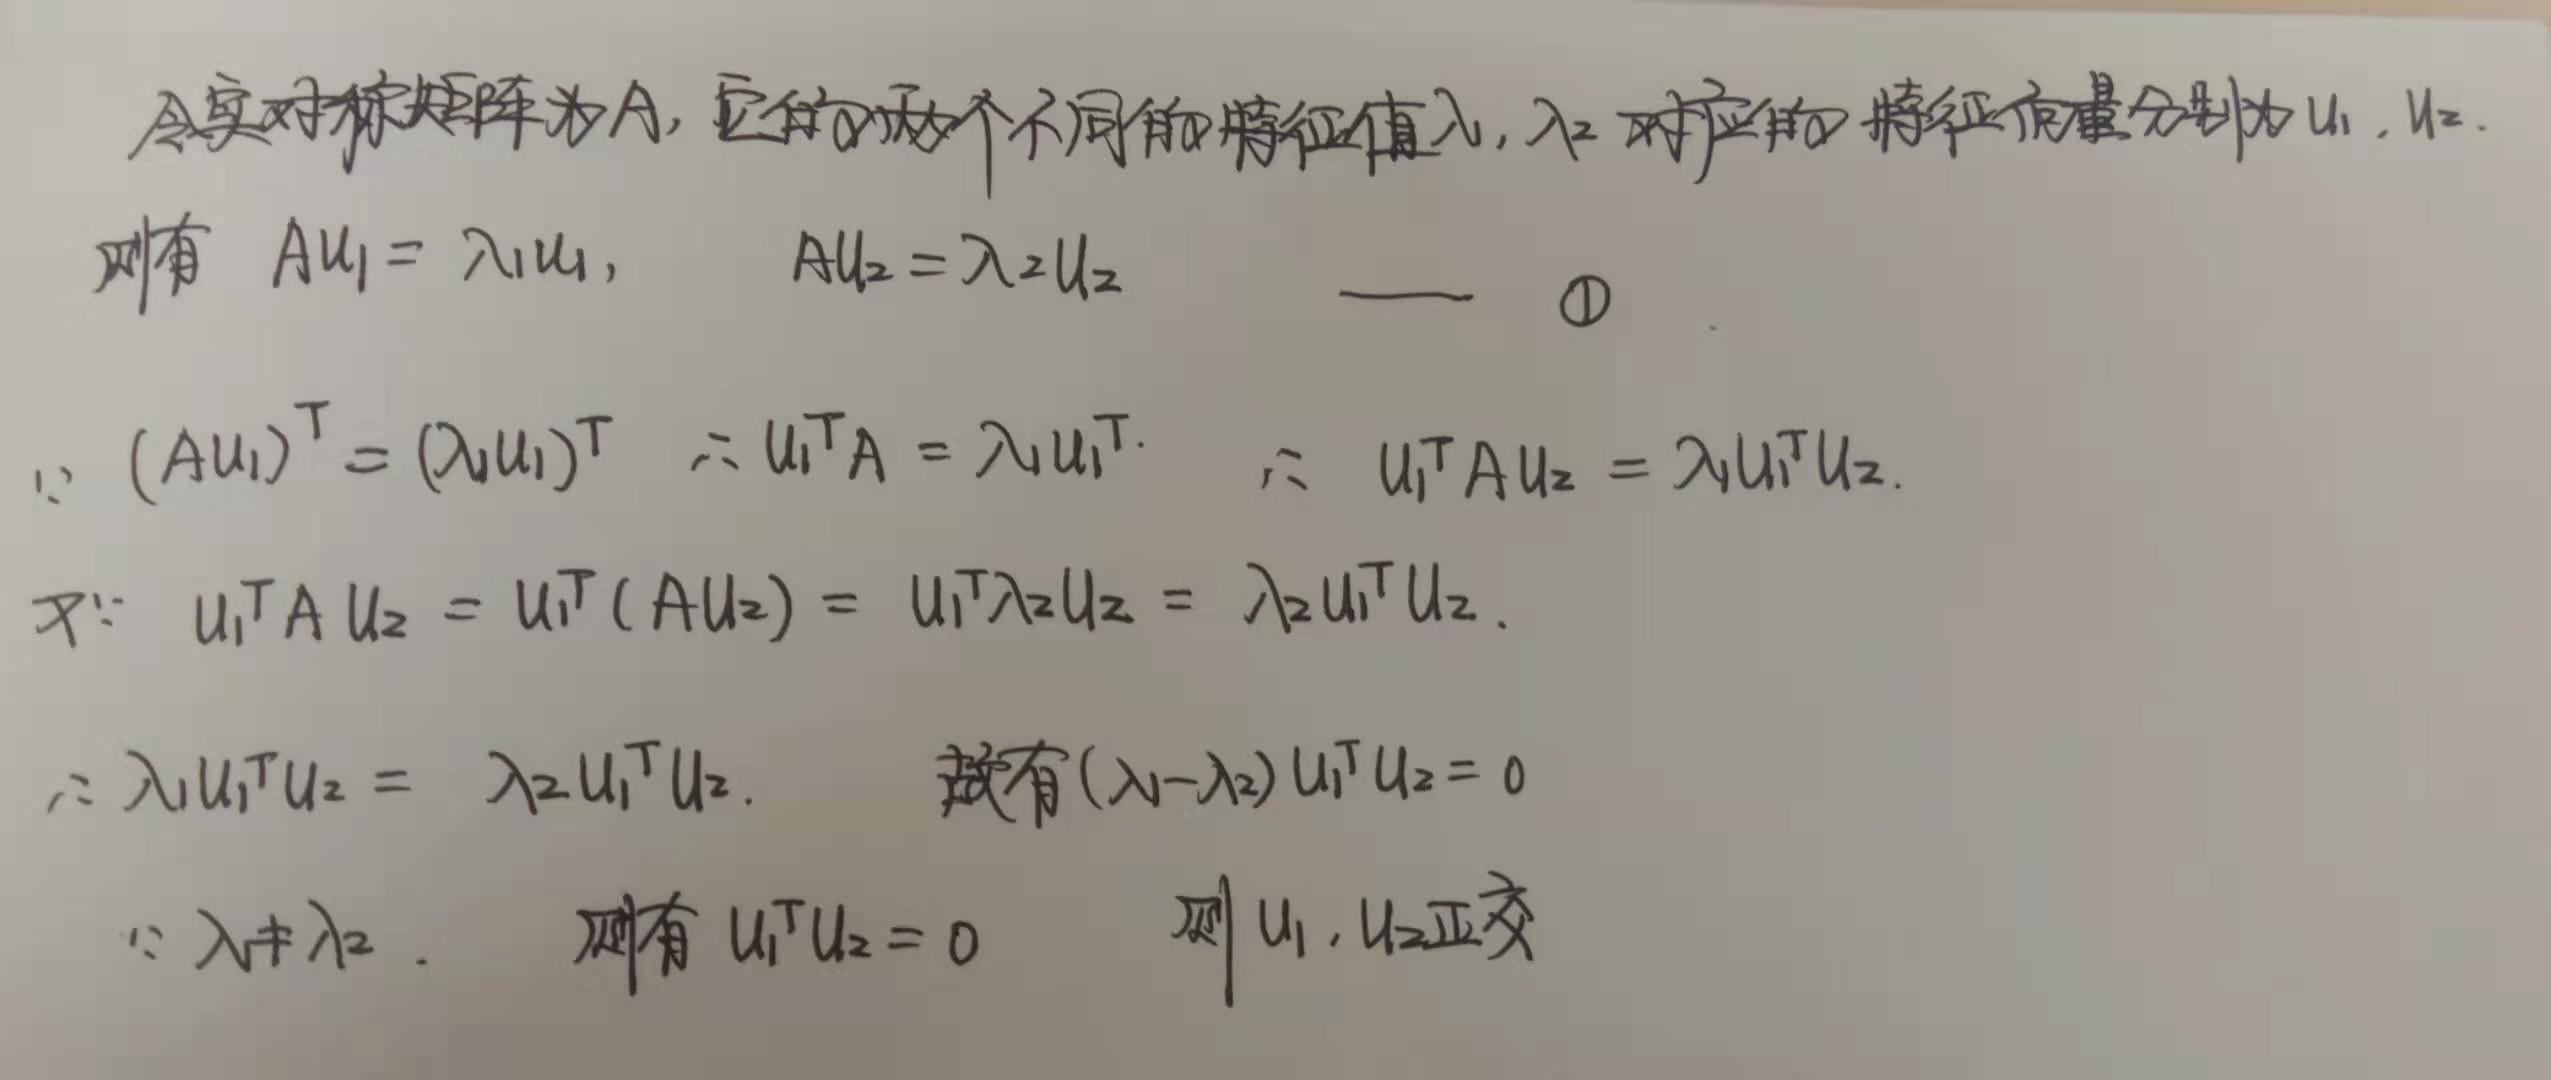 令实对称矩阵为A, 它的两个不同的特征值λ₁, λ₂ 对应的特征向量分别为u₁, u₂.
则有 Au₁ = λ₁u₁, Au₂ = λ₂u₂ —— ①
∵ (Au₁)ᵀ = (λ₁u₁)ᵀ ∴ u₁ᵀA = λ₁u₁ᵀ. ∴ u₁ᵀAu₂ = λ₁u₁ᵀu₂.
又∵ u₁ᵀAu₂ = u₁ᵀ(Au₂) = u₁ᵀλ₂u₂ = λ₂u₁ᵀu₂.
∴ λ₁u₁ᵀu₂ = λ₂u₁ᵀu₂. 故有(λ₁-λ₂)u₁ᵀu₂ = 0
∵ λ₁≠λ₂. 则有 u₁ᵀu₂ = 0 则 u₁, u₂正交